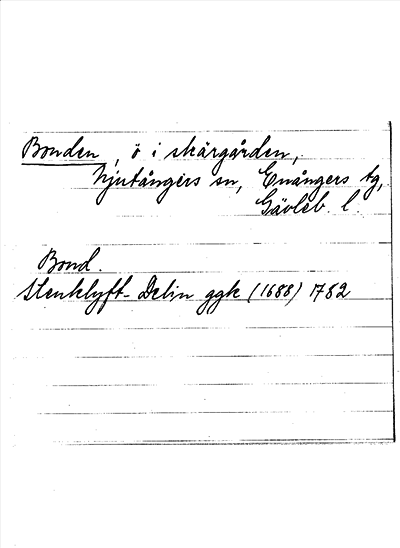 Bonden, ö i skärgården,
Njutångers sn, Enångers tg,
Gävleb. l.
Bond.
Stenklyft-Delin ggk (1688) 1782